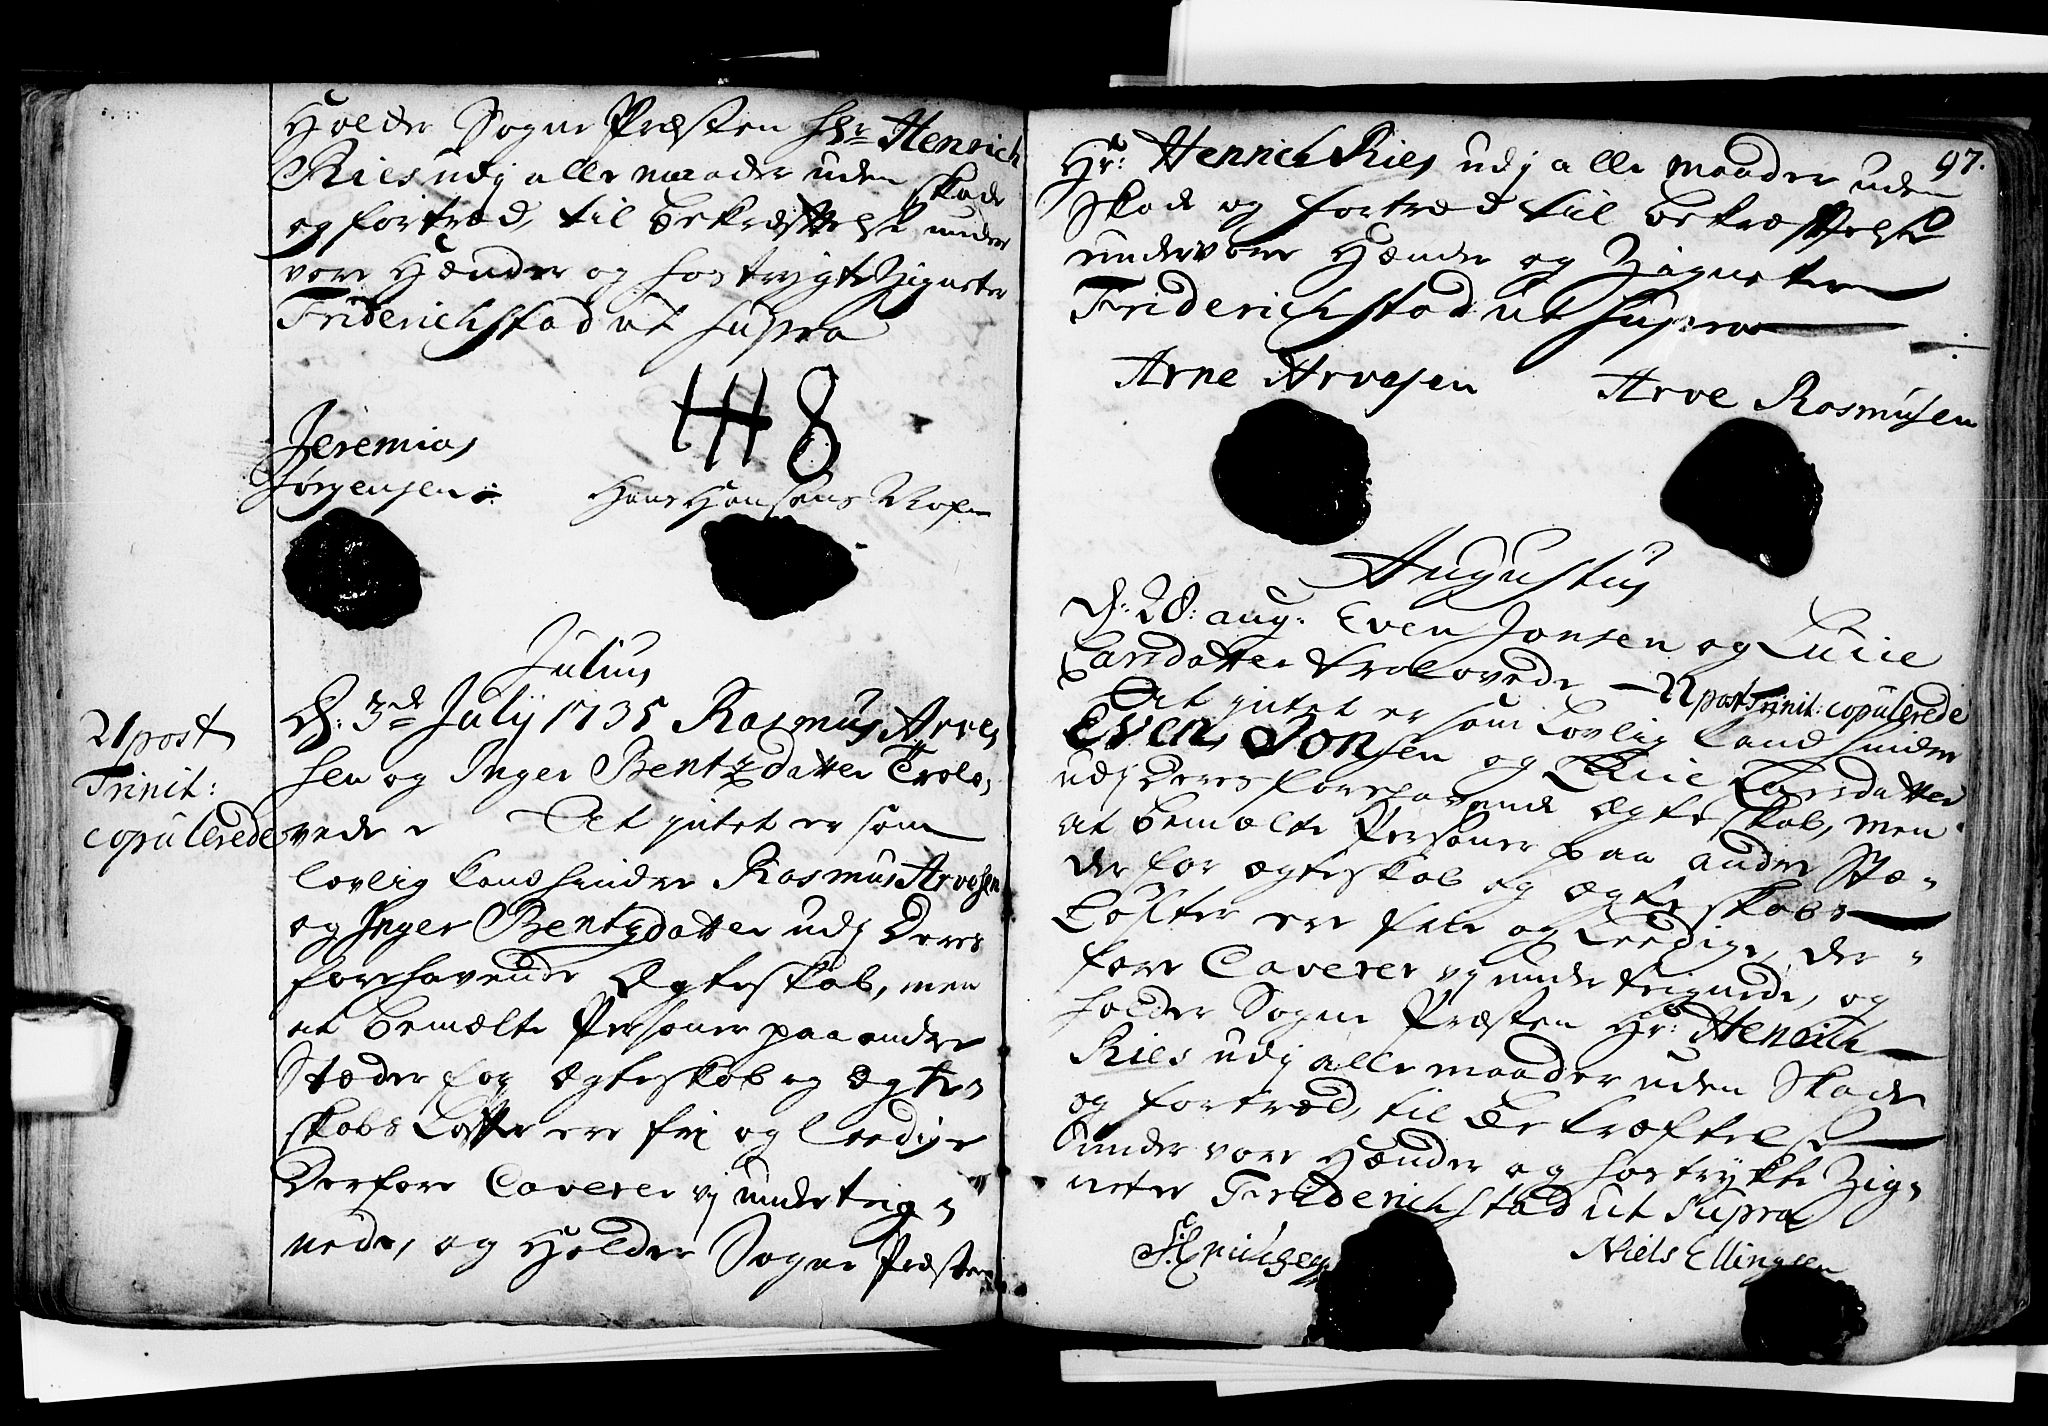 Holder Sogne Præsten Hr Henrich
Ries udj alle maader uden skade
og fortred, til bekræftelse under
vore Hænder og hostrygte Zigneter
Friderichstad ut supra
HH8
Jeremias
Jørgensen
Hans Hansens
Julius
D: 3d July 1735 Rasmus Arve,
sen og Inger Bentzdatter Trolo,
vede At intet er som
lovlig kand hindre Rasmus Arvesen
og Inger Bentzdatter udj Deres
forehavende Ægteskab, men
at bemælte Personer paa andre
Stæder for Ægteskab og Ægte,
skabs Løfter ere fri og leedige
Derfore Caverer vj underteig,
nede, og Holder Sogne Præsten
21 post
Trinit:
copulerede
97.
Hr: Henrich Ries udj alle maader uden
Skade og fortred til bekræftelse
under vore Hænder og Zigneter
Friderichstad ut supra
Arne Arvesen Arve Rasmusen
Augustus
D: 28: aug: Even Jonsen og Lucie
Larsdatter trolovede - 22 post Trinit: copulerede
At intet er som Lovlig kand hindre
Even Jonsen og Lucie Larsdatter
udj Deres forehavende Ægteskab, men
at bemælte Personer paa andre Stæ-
der for Ægteskab og Ægteskabs
Løfter ere frie og Leedige, der-
fore Caverer vj underteignede, og
holder Sogne Præsten Hr: Henrich
Ries udj alle maader uden Skade
og fortred, til Bekræftelse
under vore Hænder og hostrykte Zig,
neter Friderichstad ut Supra
Niels Ellingsen